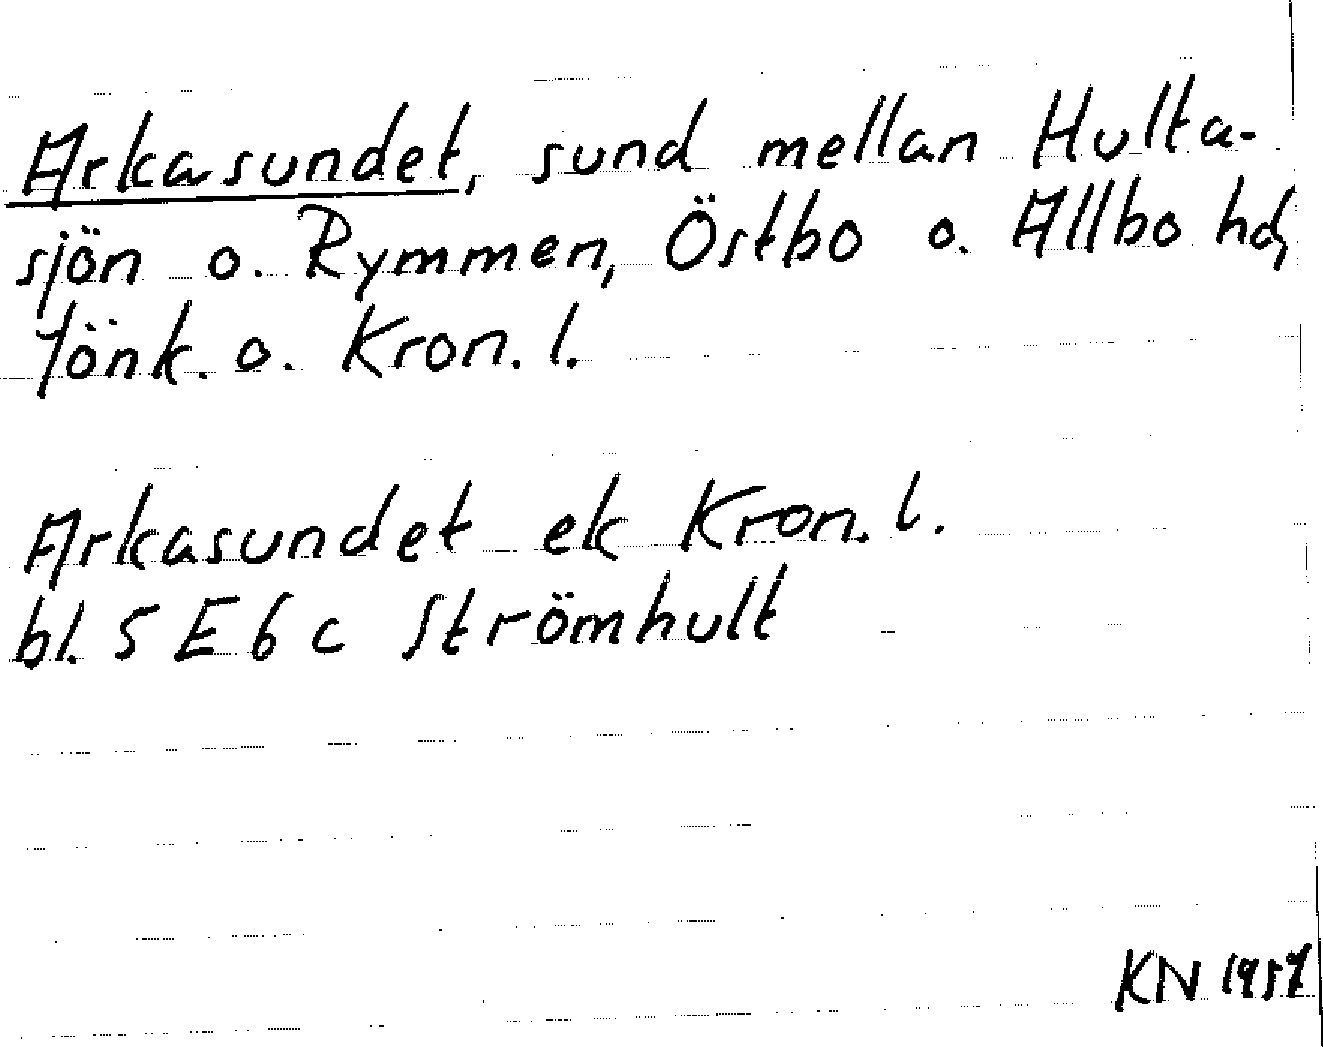 Arkasundet, sund mellan Hulta-
sjön o. Rymmen, Östbo o. Allbo hd,
Jönk. o. Kron. l.
Arkasundet ek Kron. l.
bl. 5 E 6 c Strömhult
KN